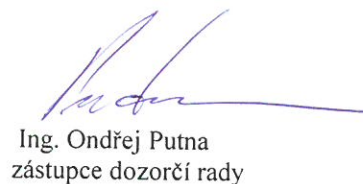 Ing. Ondřej Putna
zástupce dozorčí rady